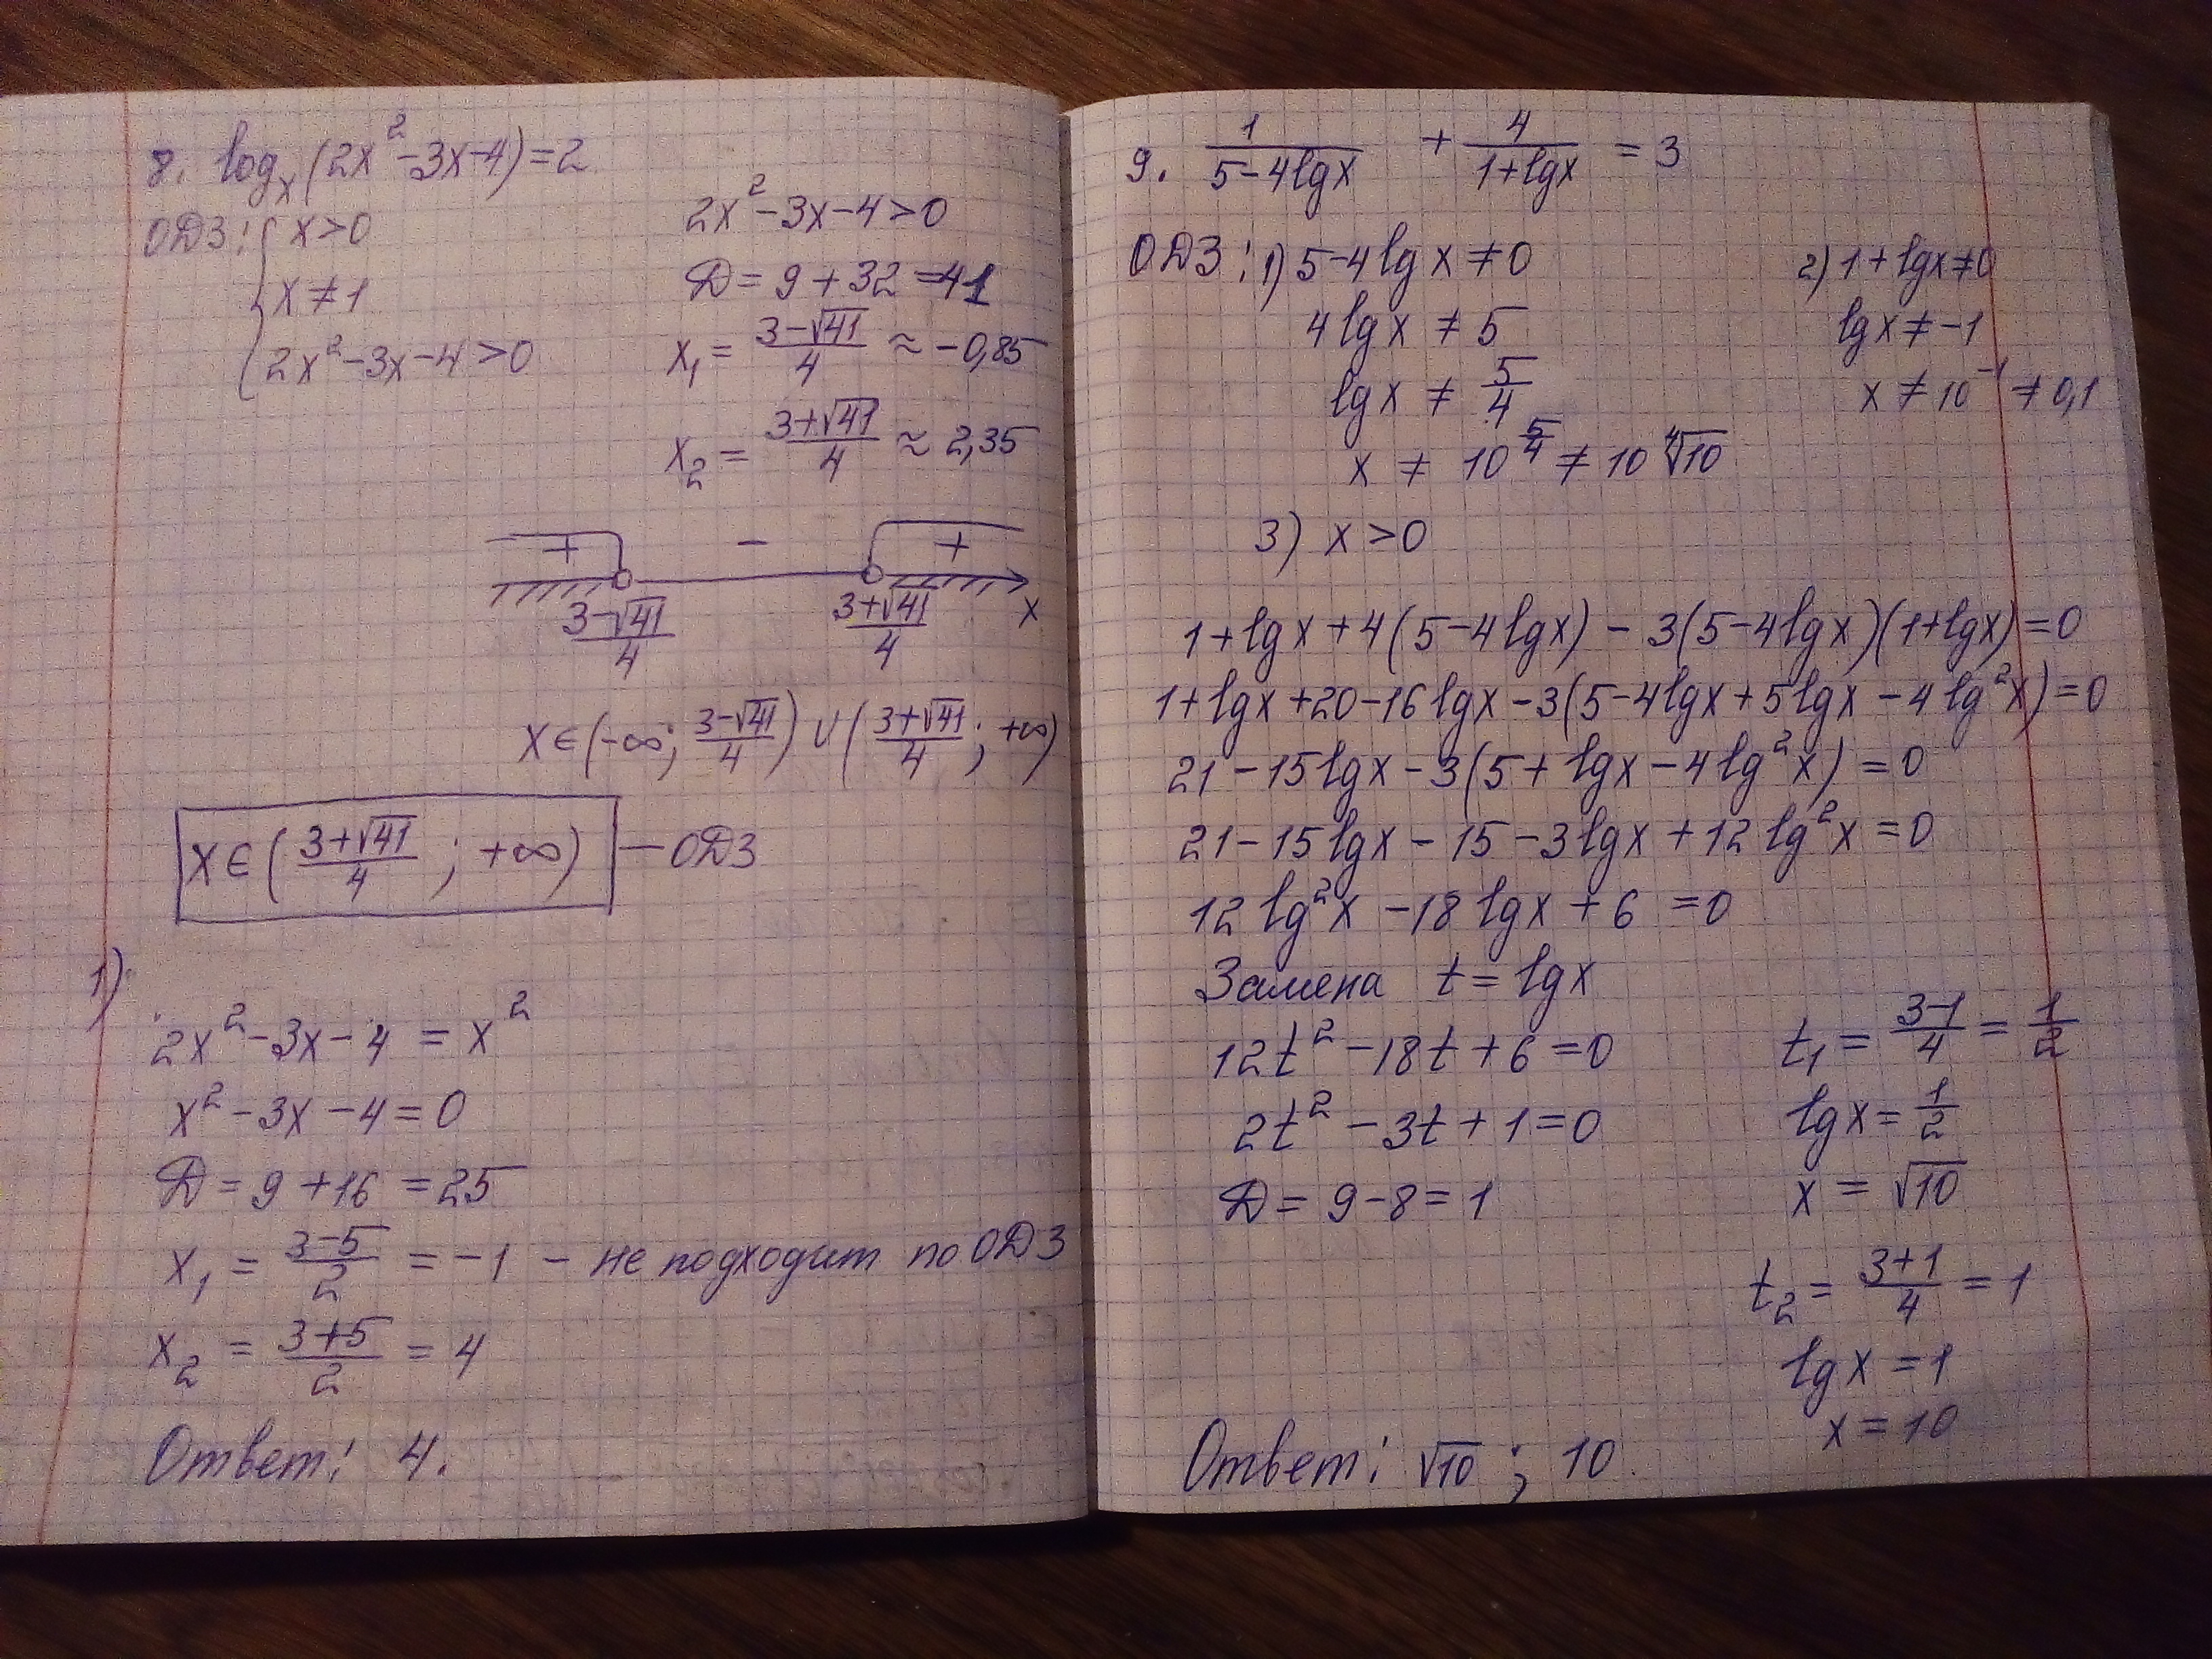 8. log_x(2x²-3x-4)=2
ОДЗ: { x>0
x≠1
2x²-3x-4>0
2x²-3x-4>0
D=9+32=41
x₁ = (3-√41)/4 ≈ -0,85
x₂ = (3+√41)/4 ≈ 2,35
+ - +
(3-√41)/4 (3+√41)/4 x
x∈(-∞; (3-√41)/4) ∪ ((3+√41)/4; +∞)
x∈((3+√41)/4; +∞) — ОДЗ
1)
2x²-3x-4 = x²
x²-3x-4=0
D=9+16=25
x₁ = (3-5)/2 = -1 - не подходит по ОДЗ
x₂ = (3+5)/2 = 4
Ответ: 4.
9. 1/(5-4lgx) + 4/(1+lgx) = 3
ОДЗ: 1) 5-4lgx≠0
4lgx ≠ 5
lgx ≠ 5/4
x ≠ 10^(5/4) ≠ 10 ⁴√10
2) 1+lgx≠0
lgx≠-1
x≠10⁻¹≠0,1
3) x>0
1+lgx+4(5-4lgx)-3(5-4lgx)(1+lgx)=0
1+lgx+20-16lgx-3(5-4lgx+5lgx-4lg²x)=0
21-15lgx-3(5+lgx-4lg²x)=0
21-15lgx-15-3lgx+12lg²x=0
12lg²x-18lgx+6=0
Замена t=lgx
12t²-18t+6=0
2t²-3t+1=0
D=9-8=1
t₁ = (3-1)/4 = 1/2
lgx = 1/2
x = √10
t₂ = (3+1)/4 = 1
lgx = 1
x = 10
Ответ: √10; 10.